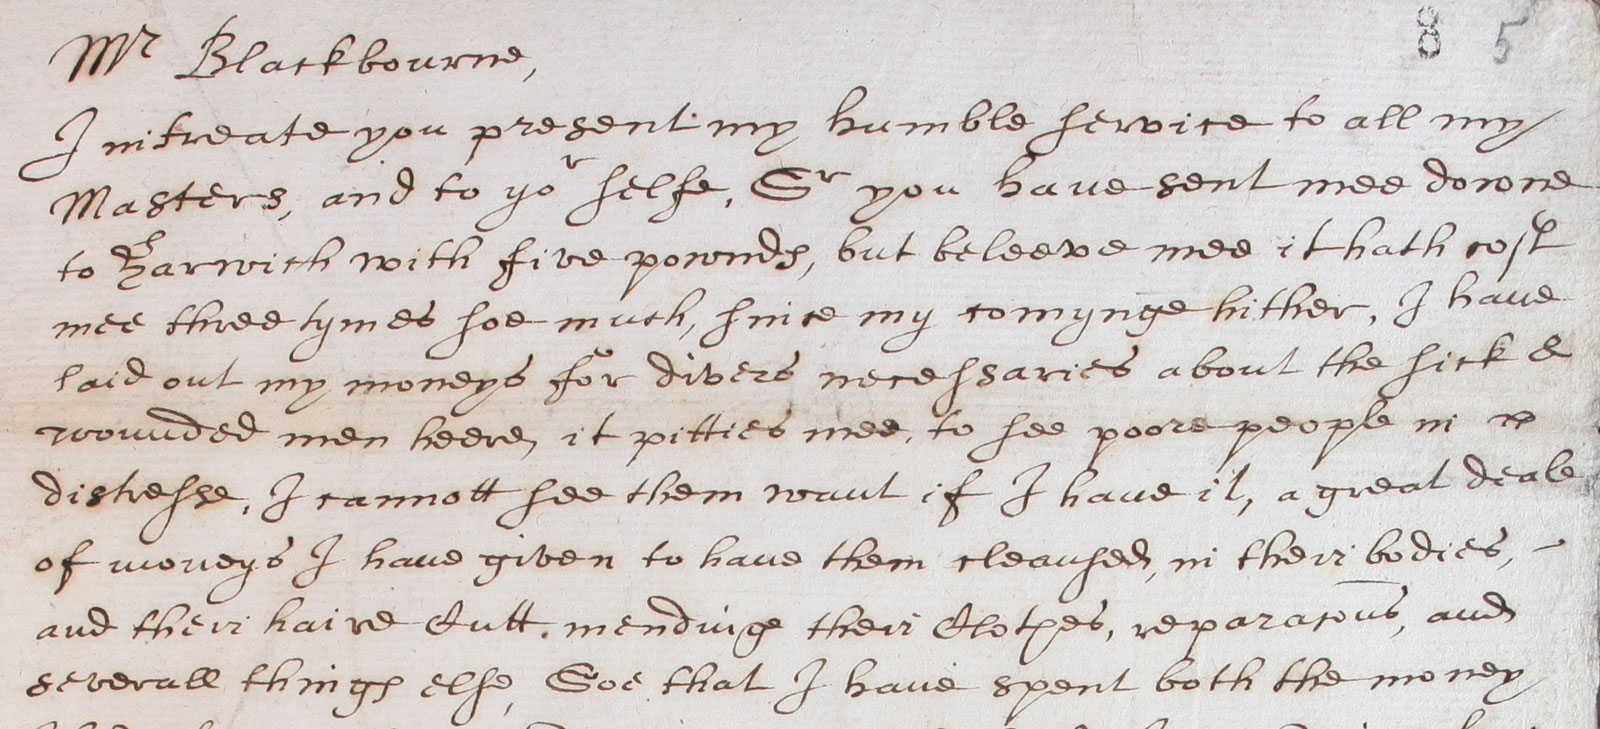 8 5
Mr Blackbourne,
I intreate you present my humble service to all my
Masters, and to yor selfe, Sr you have sent mee downe
to Harwich with five pownds, but beleeve mee it hath cost
mee three tymes soe much, since my comynge hither, I have
laid out my moneys for divers necessaries about the sick &
wounded men heere, it pitties mee, to see poore people in
distresse, I cannott see them want if I have it, a great deale
of moneys I have given to have them cleansed, in their bodies,
and their haire Cutt, mendinge their Clothes, reparacons, and
severall things else, Soe that I have spent both the money